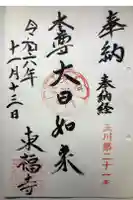 奉納
奉納経
三川第二十一番
本尊大日如来
令和六年
十一月十三日
東福寺